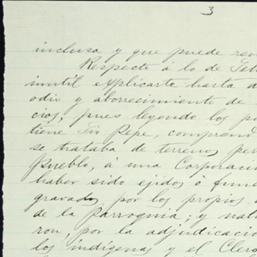 3
inclusa y que puede rem
Respecto á lo de Tet
inutil esplicarte hasta d
odio y aborrecimiento de
cios, pues leyendo los pa
tiene Tio Pepe, comprend
se trataba de terrenos per
Pueblo, á una Corporació
haber sido ejidos ó fund
gravado, por los propios
de la Parroquia; y natu
ron, por la adjudicación
los indígenas y el Clero